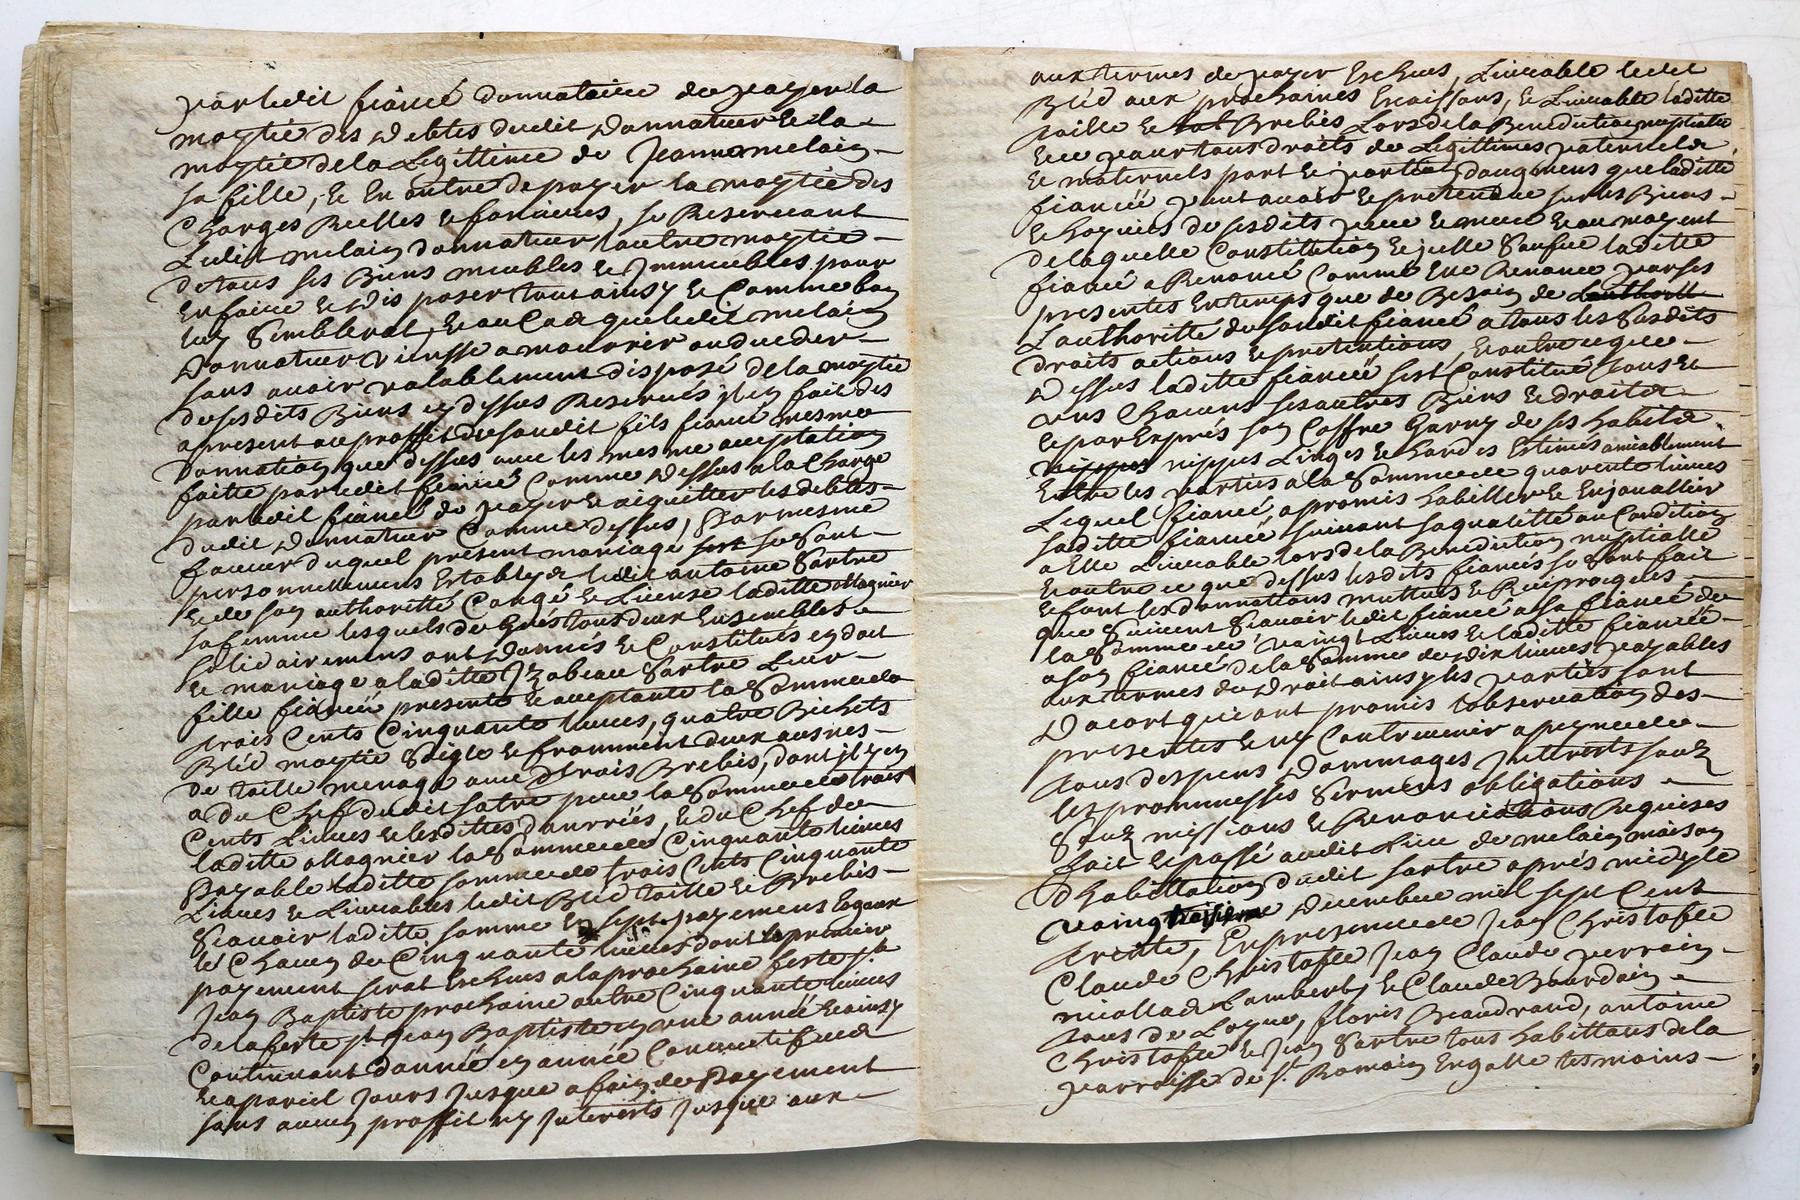 par ledit fiancé donnataire de payer la
moytié des debtes dudit donnateur & la
moytié de la Legittime de Jeanne melain
sa fille, & en outre de payer la moytié des
Charges Reelles & foncieres, se Reservant
Ledit melain donnateur lautre moytié
de tous ses Biens meubles & Immeubles pour
en faire & disposer tout ainsy & Comme bon
luy Semblerat, & au Cas que ledit melain
donnateur viensse a mourrir ou deceder
sans avoir valablement disposé de la moytié
de sesdits Biens cy dessus Reservés il en fait des
apresent au proffit dusoudit fils fiancé mesme
donnation que dessus avec les mesme acceptation
faitte par ledit fiancé Comme dessus a la Charge
par ledit fiancé de payer & aiquitter les debtes
dudit donnateur Comme dessus, Par mesme
faveur duquel présent mariage se sont
personnellement Establys ledit antoine Sartre
& de son authorité Congé & License laditte Magnier
sa femme lesquels de Grés tous deux Ensembles
solidairement ont donnés & Constitués en dot
& mariage a laditte Izabeau Sartre Leur
fille fiancée presente & acceptante la Somme de
trois Cents Cinquante livres, quatre Bichets
Bléd moytié Seigle & fromment deux ausnes
de toille menage avec trois Brebis, dont il y en
a du Chef dudit satre pour la Somme de trois
Cents Livres & lesdittes danrrées, & du Chef de
laditte Magnier la Somme de Cinquante livres
Payable laditte somme de trois Cents Cinquante
Livres & Livrables ledit Bléd toille & Brebis
Scavoir laditte somme En sept payemens Egaux
& Chacun de Cinquante livres dont le premier
payement serat Escheus a la prochaine feste St.
Jean Baptiste prochaine autre Cinquante livres
de la feste St. Jean Baptiste en une année & ainsy
Continuant d'année en année Consecutifvement
& a pareil Jours Jusque a fain de Payement
sans aucun proffit ny Interests Jusque aux
aux termes de payer Escheus, Livrable ledit
Bléd aux prochaines Encaissons, & Livrable laditte
toille & Brebis Lors de la Benediction nuptialle
& ce pour tous droits de Legittimes paternels
& maternels part & portion daugmens que laditte
fiancée peut avoir & pretendre sur les Biens
& hoyries de sesdits pere & mere & au moyent
de laquelle Constitution & jcelle Saufve laditte
fiancée a Renoncé Comme Elle Renonce par ses
presentes En temps que de Besoin de
L'authoritté dusoudit fiancé a tous les Susdits
droits actions & pretentions, & outre ce que
dessus laditte fiancée sest Constitué tous &
uns Chacuns ses autres Biens & droits
& par Exprés son Coffre Garny de ses habits
nippes Linges & hardes Estimés amiablement
Entre les parties a la Somme de quarente livres
Lequel fiancé a promis habiller & Enjouallier
laditte fiancée suivant sa qualitté ou Condition
a Elle Livrable lors de la Benediction nuptialle
& outre ce que dessus lesdits fiancés se sont fait
& font les donnations mutuels & Reciproques
que suivent Scavoir ledit fiancé a sa fiancée de
la Somme de vaingt Livres & laditte fiancée
a son fiancé de la Somme de dix livres payables
aux termes du droit ainsy les parties sont
Dacort qui ont promis lobservation des
presentes & ny Contrevenir a peyne de
tous despens Dommages Interests soubz
les prommesses Sermens obligations
Soubz missions & Renonciations Requises
fait & passé audit Lieu de melain maison
d'habittation dudit sartre aprés midy le
vaing troisieme Decembre mil sept Cent
trente, En presence de Jean Christofle
Claude Christofle Jean Claude perrain
nicollas Lambert, & Claude Bourdain
tous de Logne, floris Beaudrand, antoine
Christofle & Jean Sartre tous habittans de la
parroisse de St. Romain En galle tesmoins